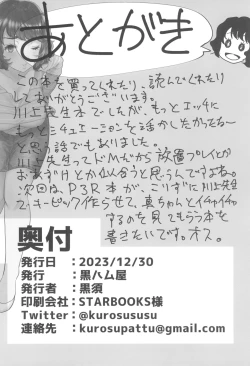 あとがき
この本を買ってくれたり、読んでくれたり
してありがとうございます。
川上先生本でしたが、もっとエッチに
もっとシチュエーションを活かしたかったな〜
と思う話でもありました。
川上先生ってドMだから放置プレイとか
おあずけとか似合うと思うんですよね。
次回は、P3R本か、こりずに川上先生
で
作らせて、真ちゃんとイチャイチャ
するのを見てもらう本を
書きたいです。オス。
奥付
発行日：2023/12/30
発行：黒ハム屋
発行者：黒須
印刷会社：STARBOOKS様
Twitter：@kurosususu
連絡先：kurosupattu@gmail.com